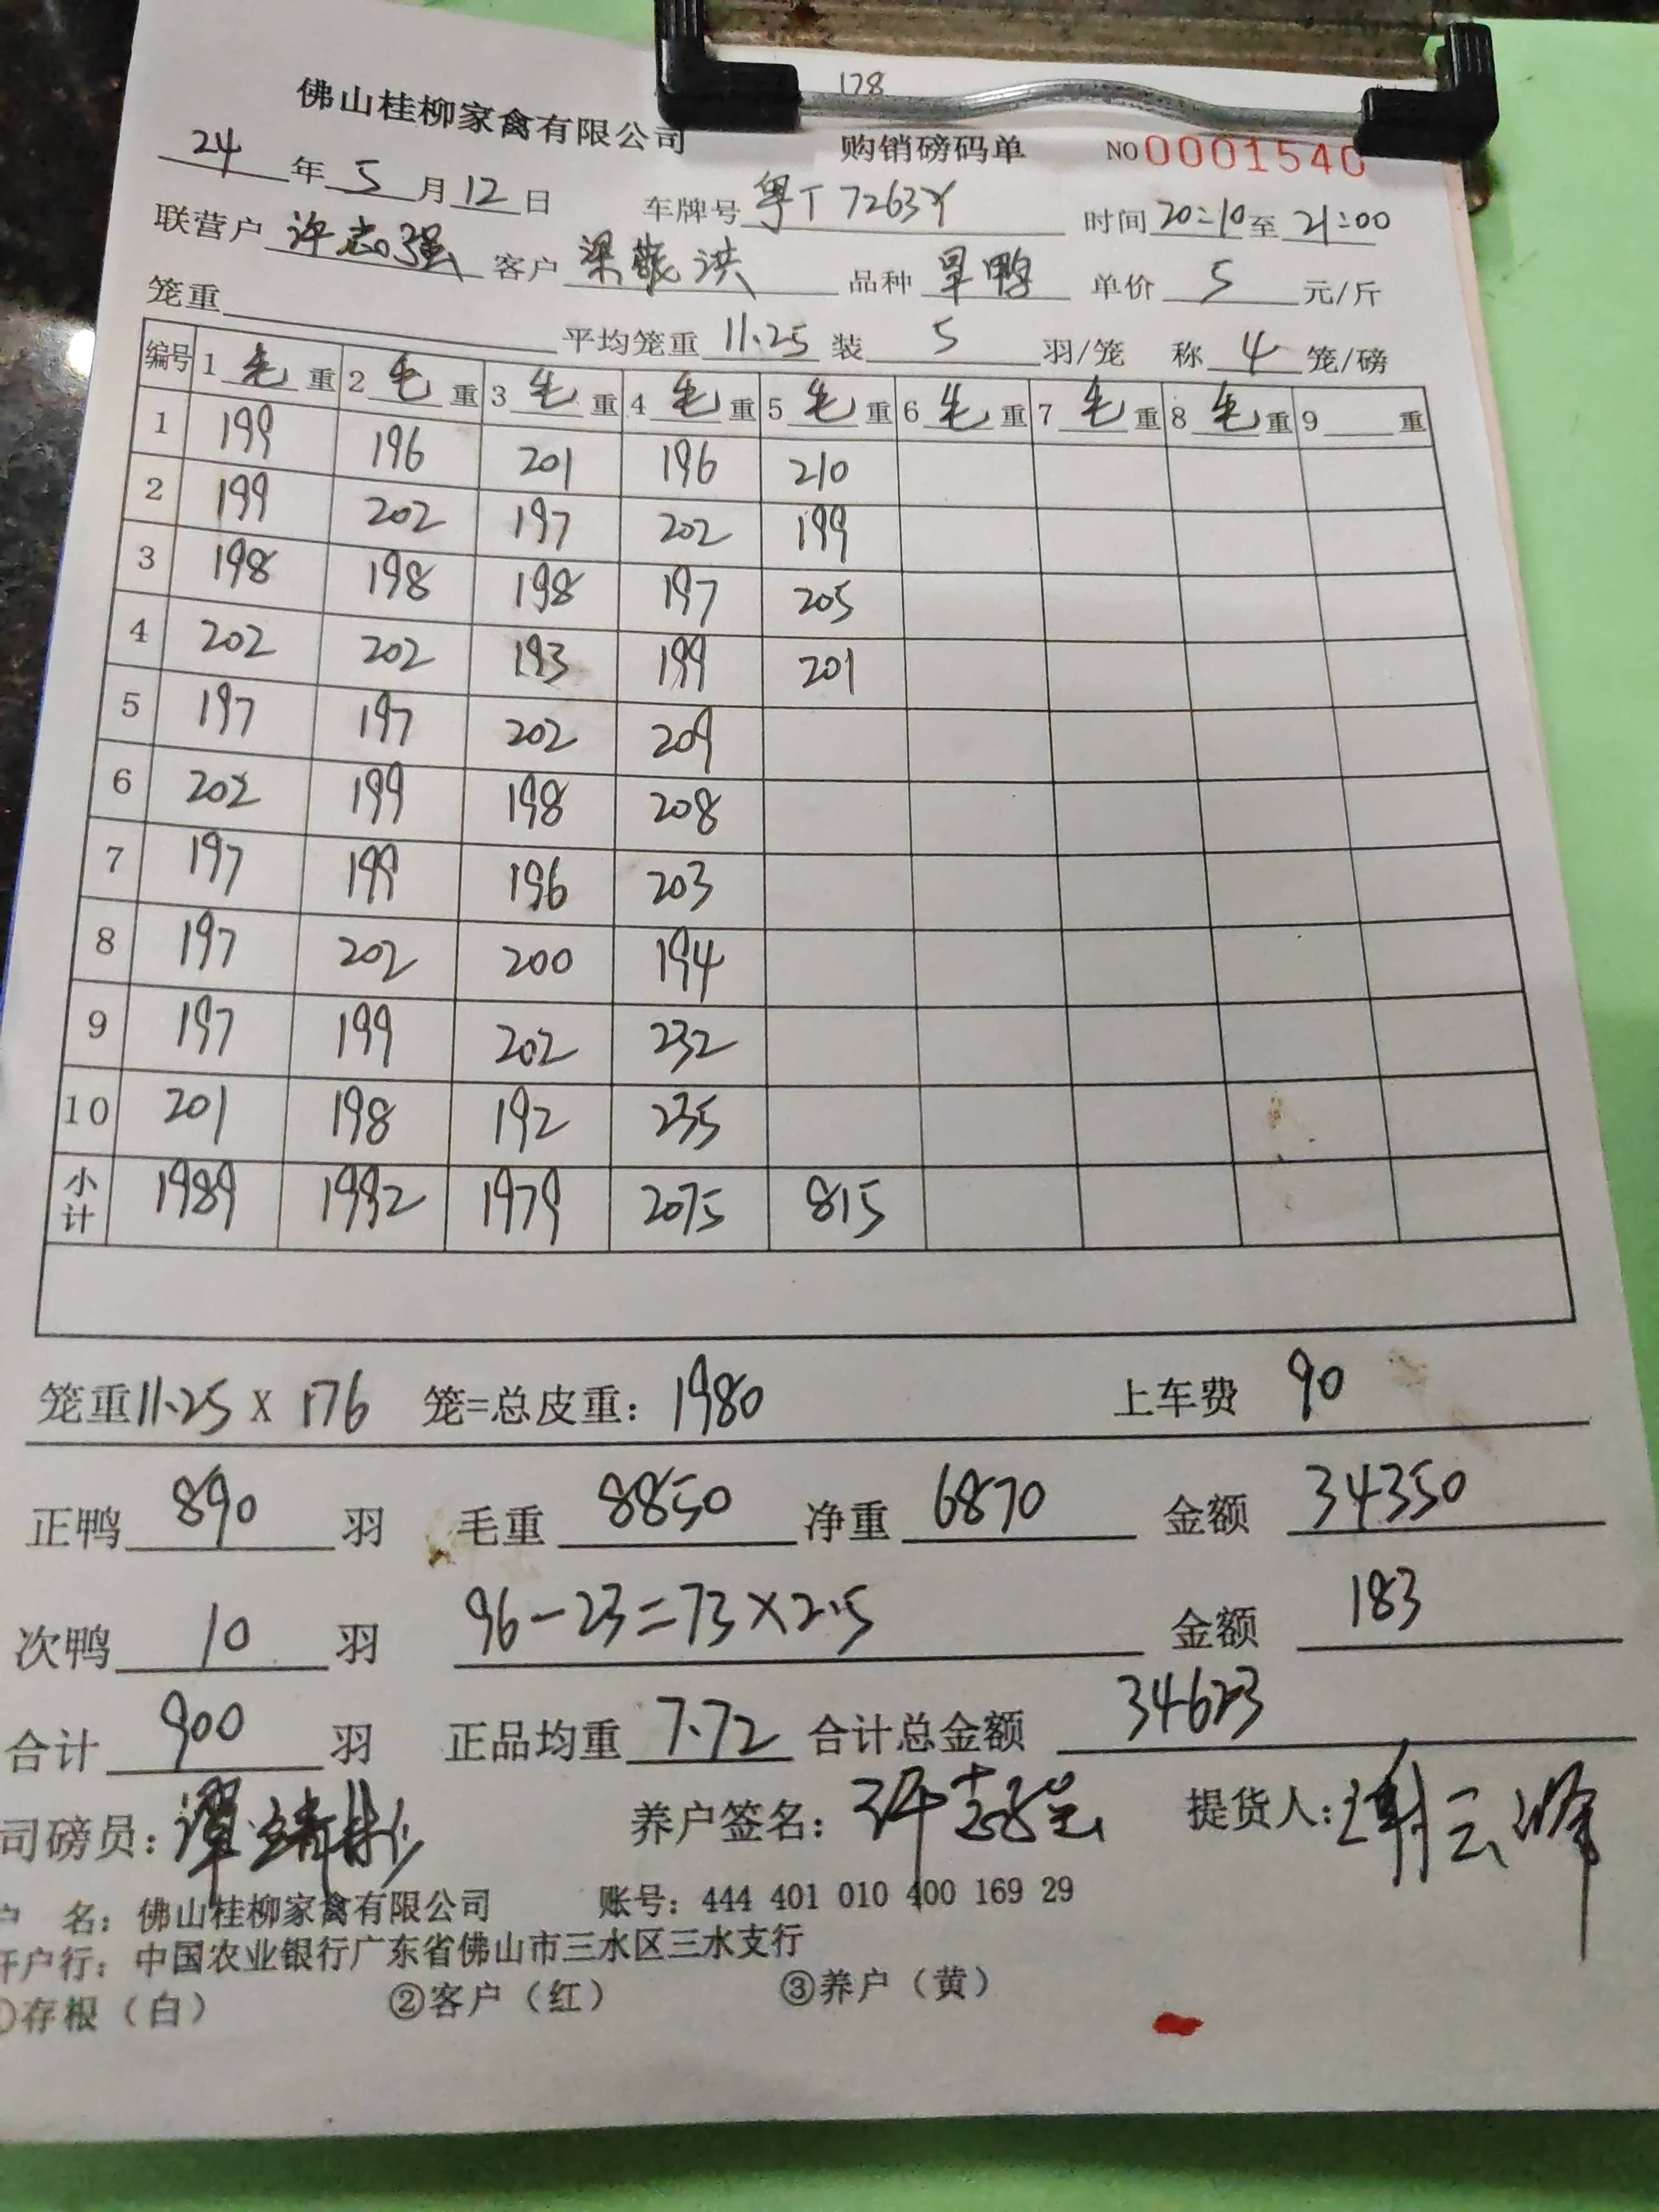 178
佛山桂柳家禽有限公司 购销磅码单 NO 0001540
24 年 5 月 12 日 车牌号 粤T 7263Y 时间 20:10 至 21:00
联营户 许志强 客户 梁 洪 品种 旱鸭 单价 5 元/斤
笼重 平均笼重 11.25 装 5 羽/笼 称 4 笼/磅
编号 1 毛 重 2 毛 重 3 毛 重 4 毛 重 5 毛 重 6 毛 重 7 毛 重 8 毛 重 9 重
1 199 196 201 196 210
2 199 202 197 202 199
3 198 198 198 197 205
4 202 202 193 199 201
5 197 197 202 209
6 202 199 198 208
7 197 199 196 203
8 197 202 200 194
9 197 199 202 232
10 201 198 192 235
小计 1989 1992 1979 2075 815
笼重11.25 X 176 笼=总皮重: 1980 上车费 90
正鸭 890 羽 毛重 8850 净重 6870 金额 34350
次鸭 10 羽 96-23=73×2.5 金额 183
合计 900 羽 正品均重 7.72 合计总金额 34623
司磅员: 养户签名: 许志强 提货人: 谢云峰
户 名: 佛山桂柳家禽有限公司 账号: 444 401 010 400 169 29
开户行: 中国农业银行广东省佛山市三水区三水支行
①存根（白） ②客户（红） ③养户（黄）